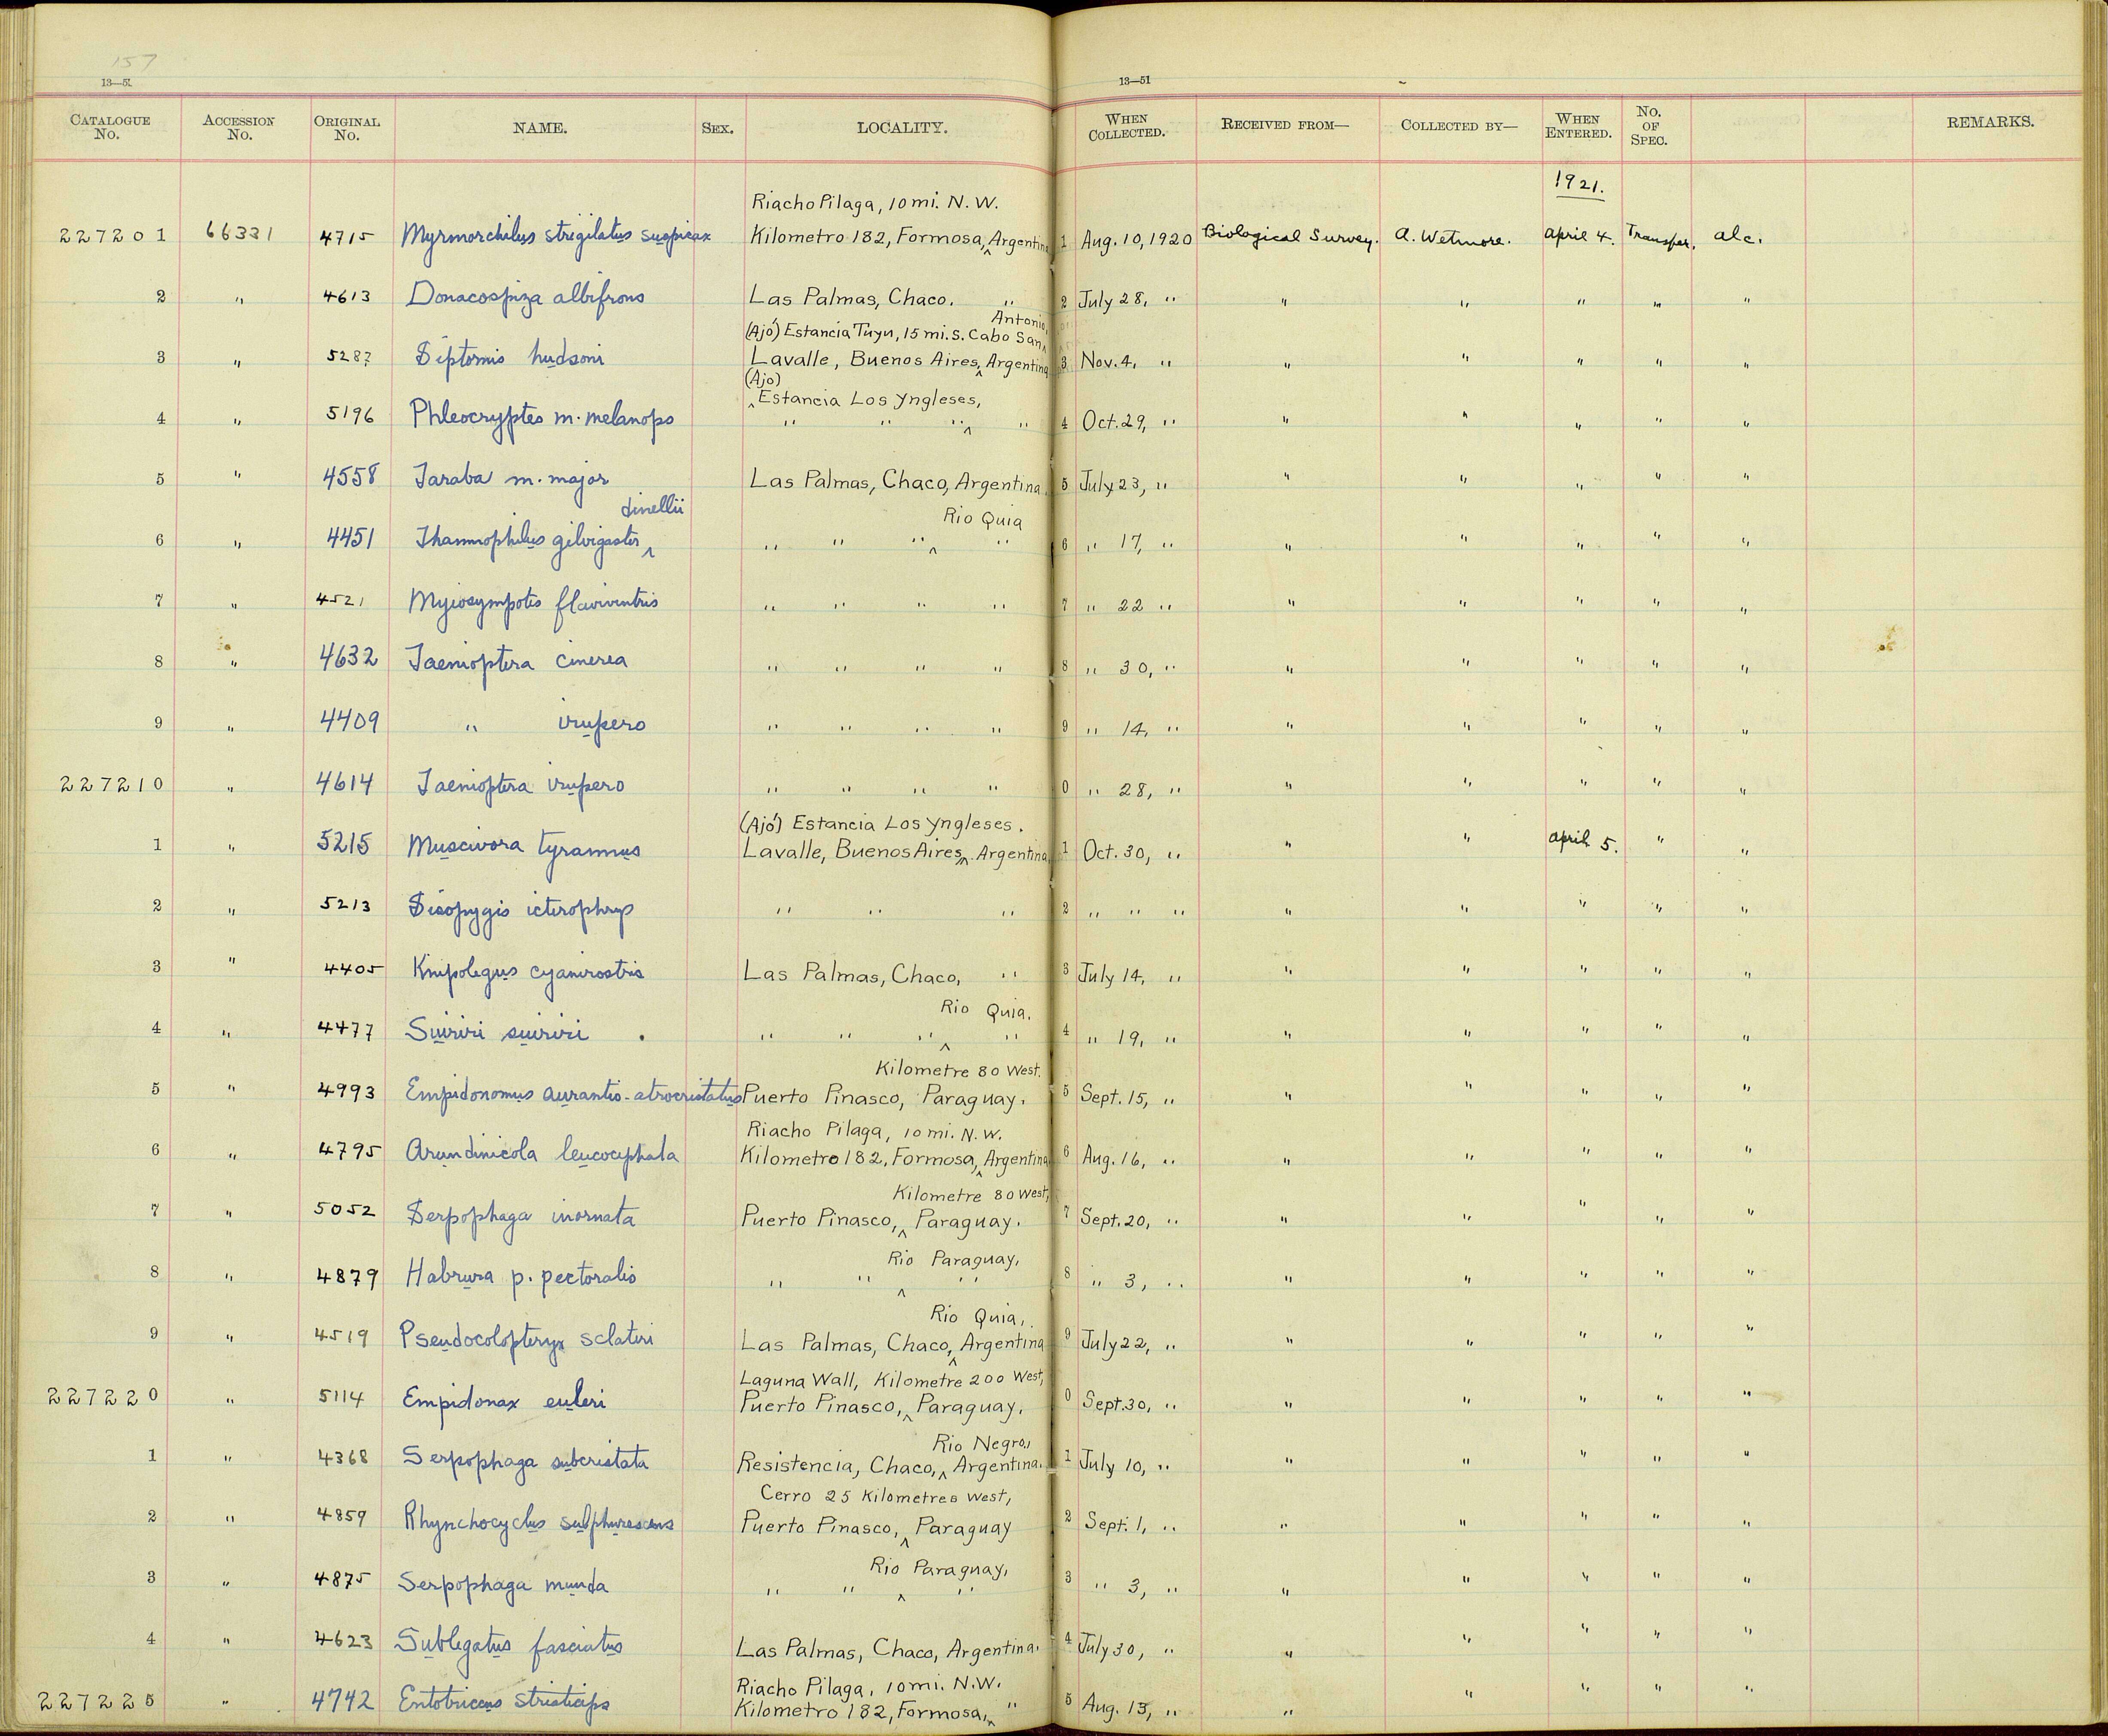 157
13—51
13—51
CATALOGUE No. ACCESSION No. ORIGINAL No. NAME. SEX. LOCALITY. WHEN COLLECTED. RECEIVED FROM— COLLECTED BY— WHEN ENTERED. No. OF SPEC. REMARKS.
1921.
Riacho Pilaga, 10 mi. N. W.
227201 66331 4715 Myrmorchilus strigilatus suspicax Kilometro 182, Formosa, ^ Argentina 1 Aug. 10, 1920 Biological Survey. A. Wetmore. April 4. Transfer. alc.
2 " 4613 Donacospiza albifrons Las Palmas, Chaco. " 2 July 28, " " " " " "
(Ajó) Estancia Tuyu, 15 mi. S. Cabo San ^ Antonio,
3 " 5287 Siptornis hudsoni Lavalle, Buenos Aires, ^ Argentina 3 Nov. 4, " " " " " "
(Ajo)
^ Estancia Los Yngleses,
4 " 5196 Phleocryptes m. melanops " " " ^ " 4 Oct. 29, " " " " " "
5 " 4558 Taraba m. major Las Palmas, Chaco, Argentina. 5 July 23, " " " " " "
dinellii Rio Quia
6 " 4451 Thamnophilus gilvigaster ^ " " " ^ " 6 " 17, " " " " " "
7 " 4521 Myiosympotes flaviventris " " " " 7 " 22 " " " " " "
8 " 4632 Taenioptera cinerea " " " " 8 " 30, " " " " " "
9 " 4409 " irupero " " " " 9 " 14, " " " " " "
227210 " 4614 Taenioptera irupero " " " " 0 " 28, " " " " " "
(Ajó) Estancia Los Yngleses.
1 " 5215 Muscivora tyrannus Lavalle, Buenos Aires, ^ Argentina, 1 Oct. 30, " " " April 5. " "
2 " 5213 Sisopygis icterophrys " " " 2 " " " " " " " "
3 " 4405 Knipolegus cyanirostris Las Palmas, Chaco, " 3 July 14, " " " " " "
Rio Quia.
4 " 4477 Suiriri suiriri . " " " ^ " 4 " 19, " " " " " "
Kilometre 80 West.
5 " 4993 Empidonomus aurantio-atrocristatus Puerto Pinasco, Paraguay. 5 Sept. 15, " " " " " "
Riacho Pilaga, 10 mi. N. W.
6 " 4795 Arundinicola leucocephala Kilometro 182, Formosa, ^ Argentina 6 Aug. 16, " " " " " "
Kilometre 80 West,
7 " 5052 Serpophaga inornata Puerto Pinasco, ^ Paraguay. 7 Sept. 20, " " " " " "
Rio Paraguay,
8 " 4879 Habrura p. pectoralis " " ^ " 8 " 3, " " " " " "
Rio Quia,
9 " 4519 Pseudocolopteryx sclateri Las Palmas, Chaco, ^ Argentina 9 July 22, " " " " " "
Laguna Wall, Kilometre 200 West,
227220 " 5114 Empidonax euleri Puerto Pinasco, ^ Paraguay, 0 Sept. 30, " " " " " "
Rio Negro,
1 " 4368 Serpophaga subcristata Resistencia, Chaco, ^ Argentina. 1 July 10, " " " " " "
Cerro 25 Kilometres West,
2 " 4859 Rhynchocyclus sulphurescens Puerto Pinasco, ^ Paraguay 2 Sept. 1, " " " " " "
Rio Paraguay,
3 " 4875 Serpophaga munda " " ^ " 3 " 3, " " " " " "
4 " 4623 Sublegatus fasciatus Las Palmas, Chaco, Argentina. 4 July 30, " " " " " "
Riacho Pilaga, 10 mi. N.W.
227225 " 4742 Entotriccus striaticeps Kilometro 182, Formosa, ^ " 5 Aug. 13, " " " " " "